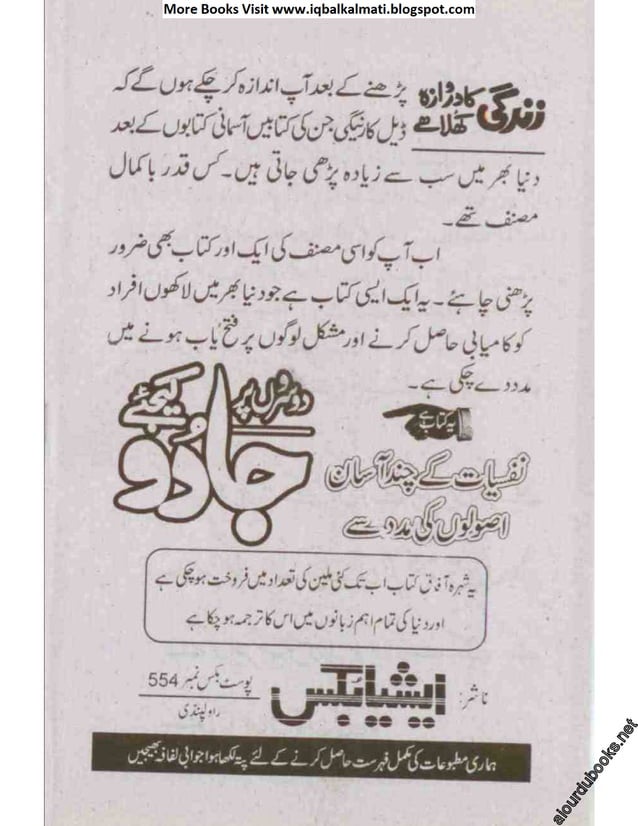 More Books Visit www.iqbalkalmati.blogspot.com
زندگی کا دروازہ کھلا ہے پڑھنے کے بعد آپ اندازہ کر چکے ہوں گے کہ
ڈیل کارنیگی جن کی کتابیں آسمانی کتابوں کے بعد
دنیا بھر میں سب سے زیادہ پڑھی جاتی ہیں۔ کس قدر باکمال
مصنف تھے۔
اب آپ کو اسی مصنف کی ایک اور کتاب بھی ضرور
پڑھنی چاہئے۔ یہ ایک ایسی کتاب ہے جو دنیا بھر میں لاکھوں افراد
کو کامیابی حاصل کرنے اور مشکل لوگوں پر فتح یاب ہونے میں
مدد دے چکی ہے۔
یہ کتاب ہے
دوسروں پر جادو کیجئے
نفسیات کے چند آسان
اصولوں کی مدد سے
یہ شہرہ آفاق کتاب اب تک کئی ملین کی تعداد میں فروخت ہو چکی ہے
اور دنیا کی تمام اہم زبانوں میں اس کا ترجمہ ہو چکا ہے
ناشر: ایشیا بکس پوسٹ بکس نمبر 554
راولپنڈی
ہماری مطبوعات کی مکمل فہرست حاصل کرنے کے لئے پتہ لکھا ہوا جوابی لفافہ بھیجیں
alourdubooks.net